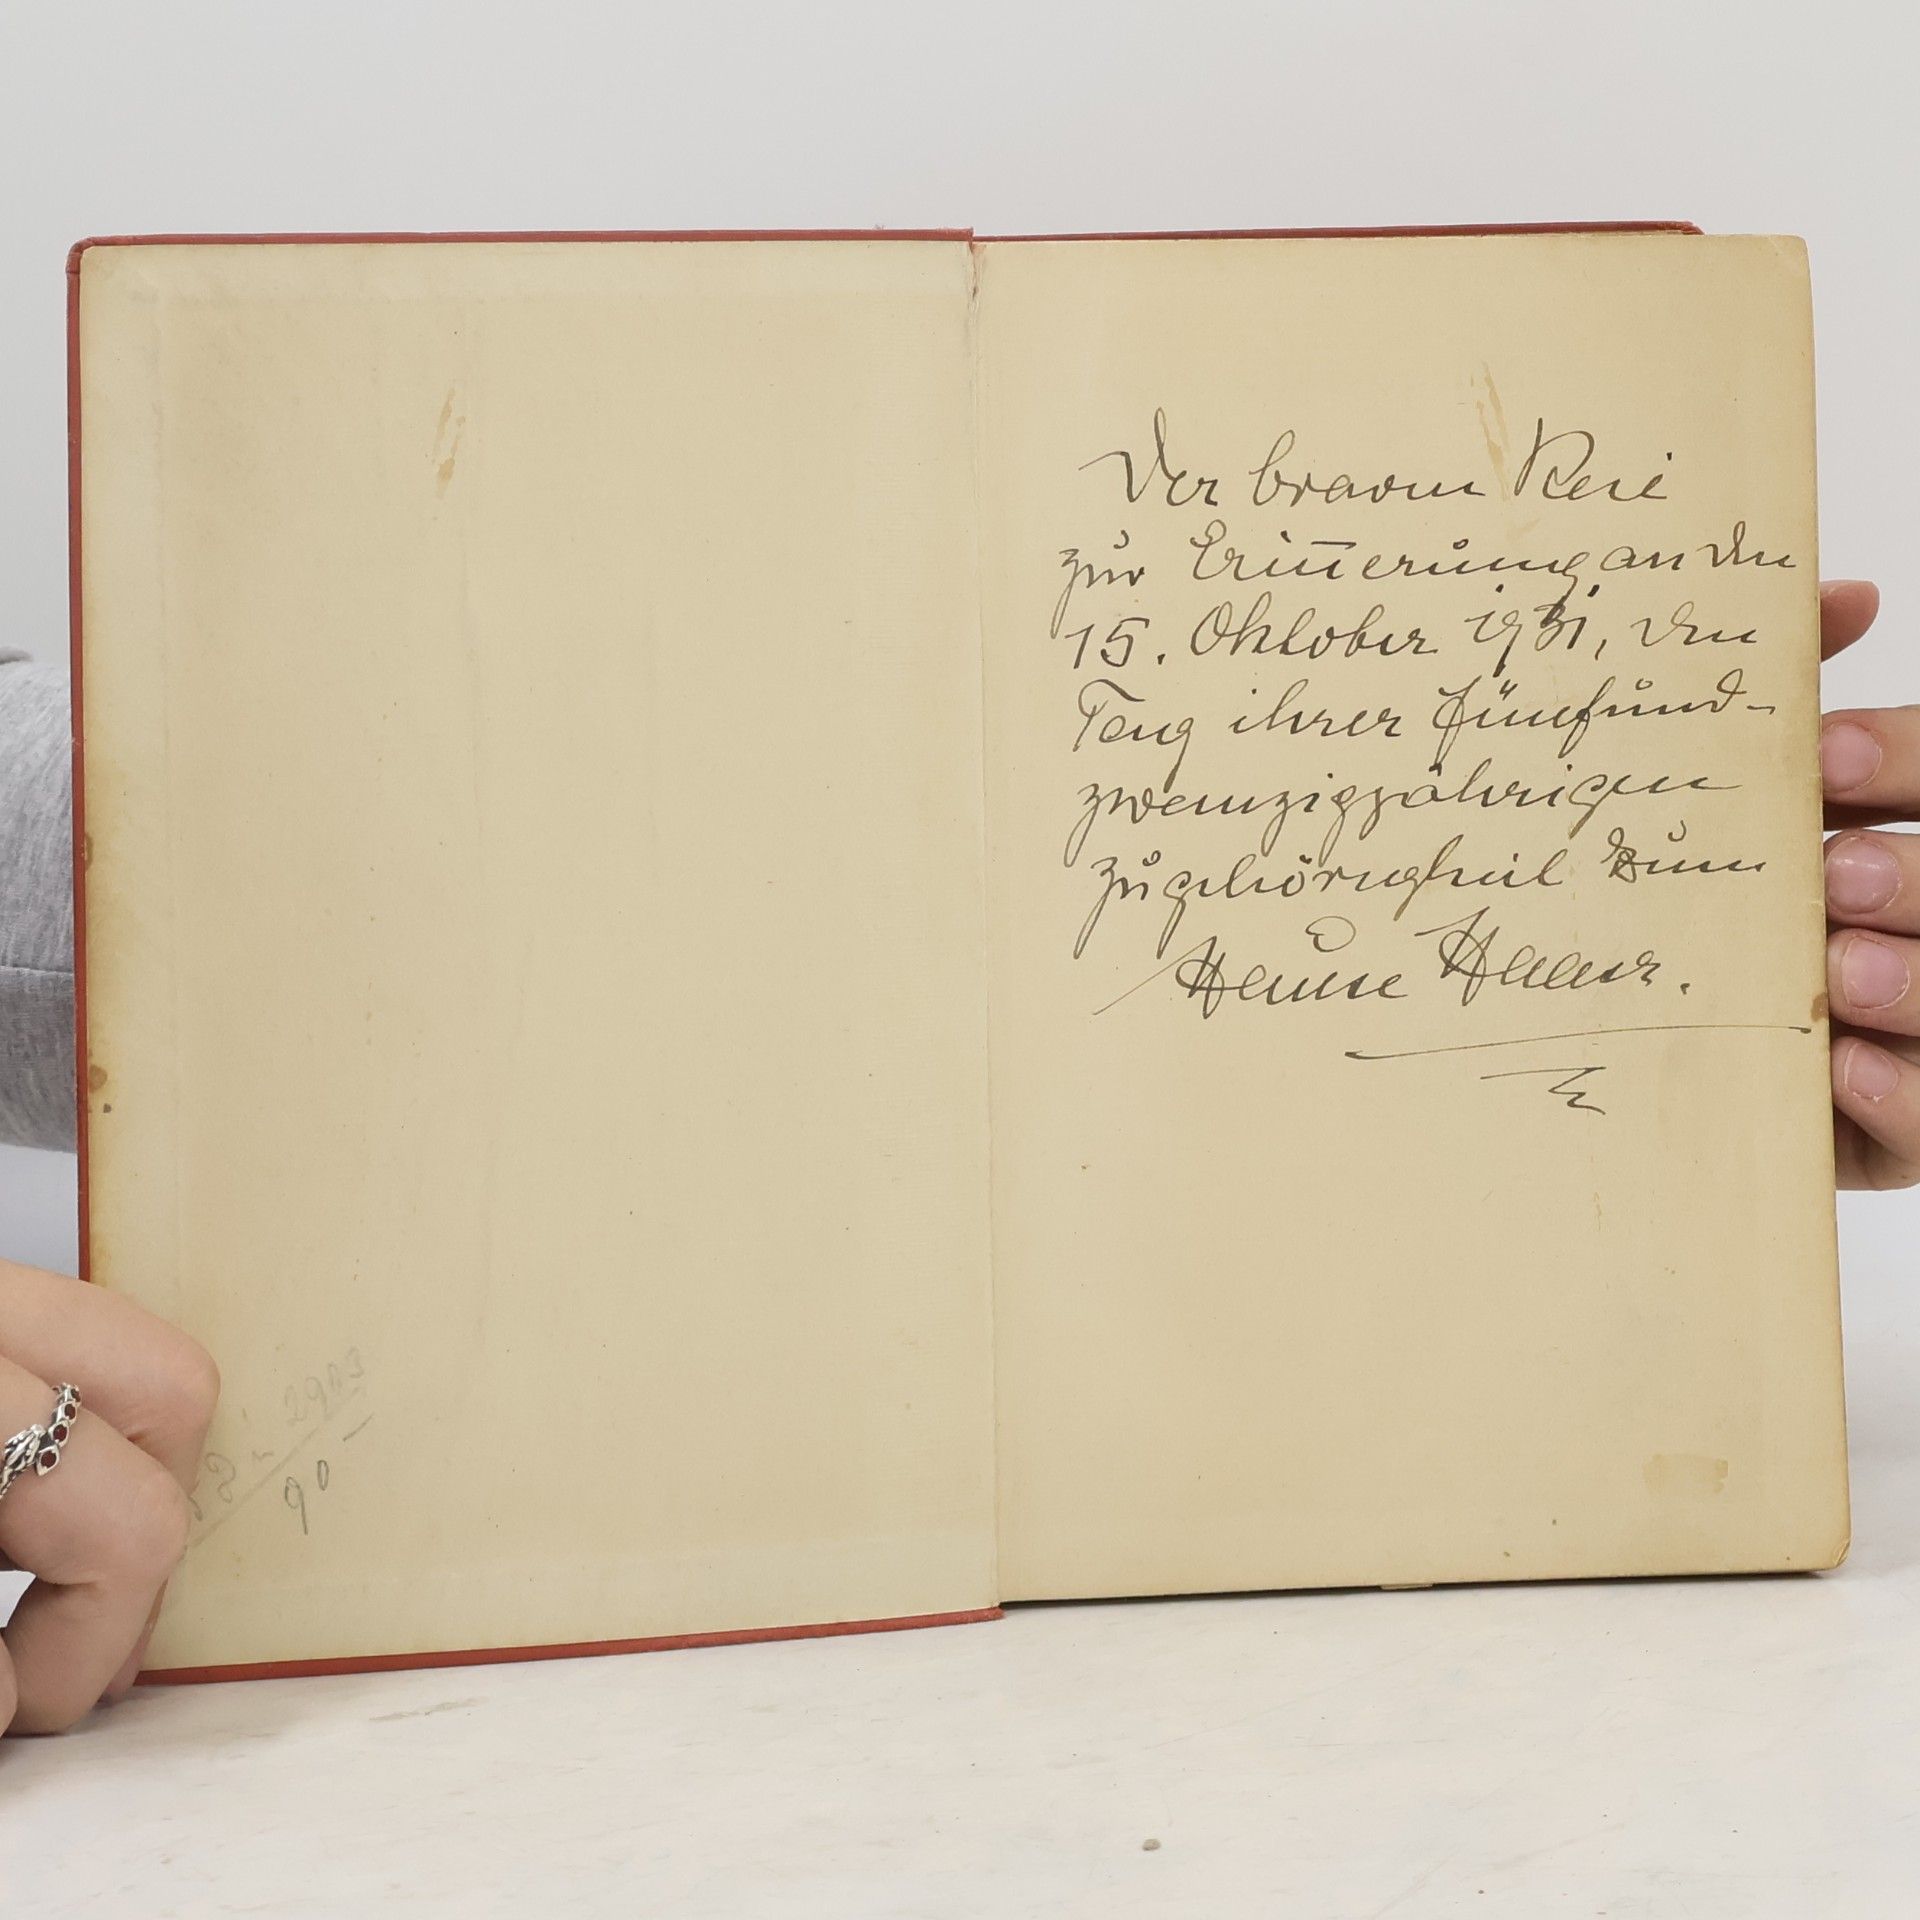 Der braven Resi
zur Erinnerung an den
15. Oktober 1931, den
Tag ihrer fünfund-
zwanzigjährigen
Zugehörigkeit zum
Hause Haas.
90